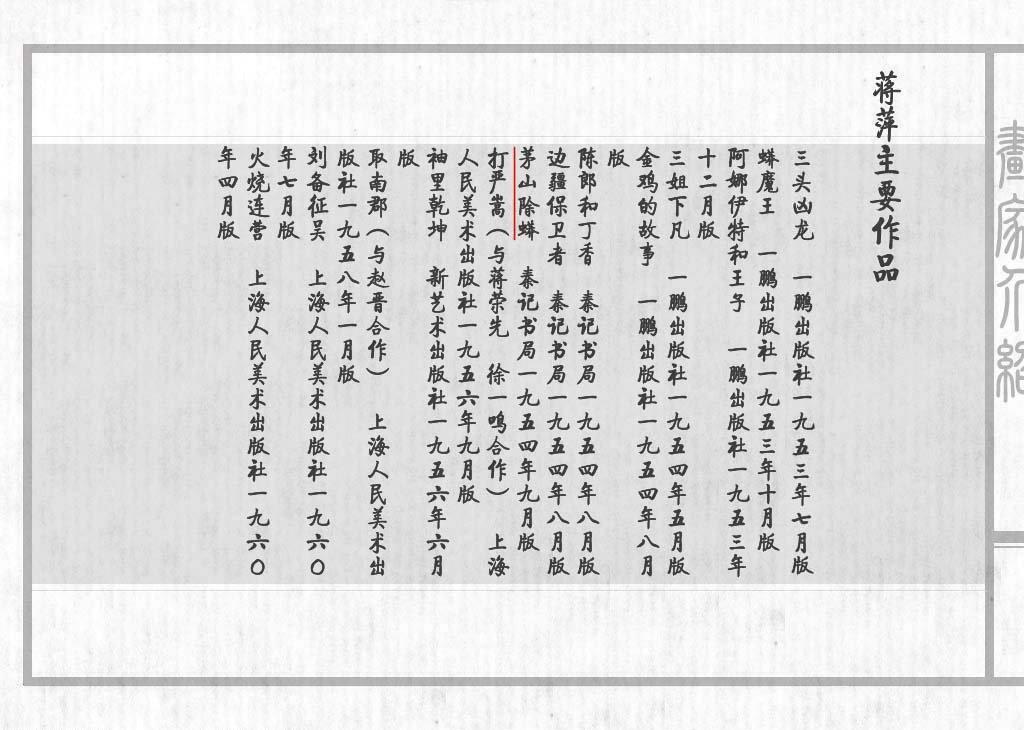 畫家介紹
蒋萍主要作品
三头凶龙　一鹏出版社一九五三年七月版
蟒魔王　一鹏出版社一九五三年十月版
阿娜伊特和王子　一鹏出版社一九五三年
十二月版
三姐下凡　一鹏出版社一九五四年五月版
金鸡的故事　一鹏出版社一九五四年八月
版
陈郎和丁香　泰记书局一九五四年八月版
边疆保卫者　泰记书局一九五四年八月版
茅山除蟒　泰记书局一九五四年九月版
打严嵩（与蒋荣先　徐一鸣合作）　上海
人民美术出版社一九五六年九月版
袖里乾坤　新艺术出版社一九五六年六月
版
取南郡（与赵晋合作）　上海人民美术出
版社一九五八年一月版
刘备征吴　上海人民美术出版社一九六〇
年七月版
火烧连营　上海人民美术出版社一九六〇
年四月版